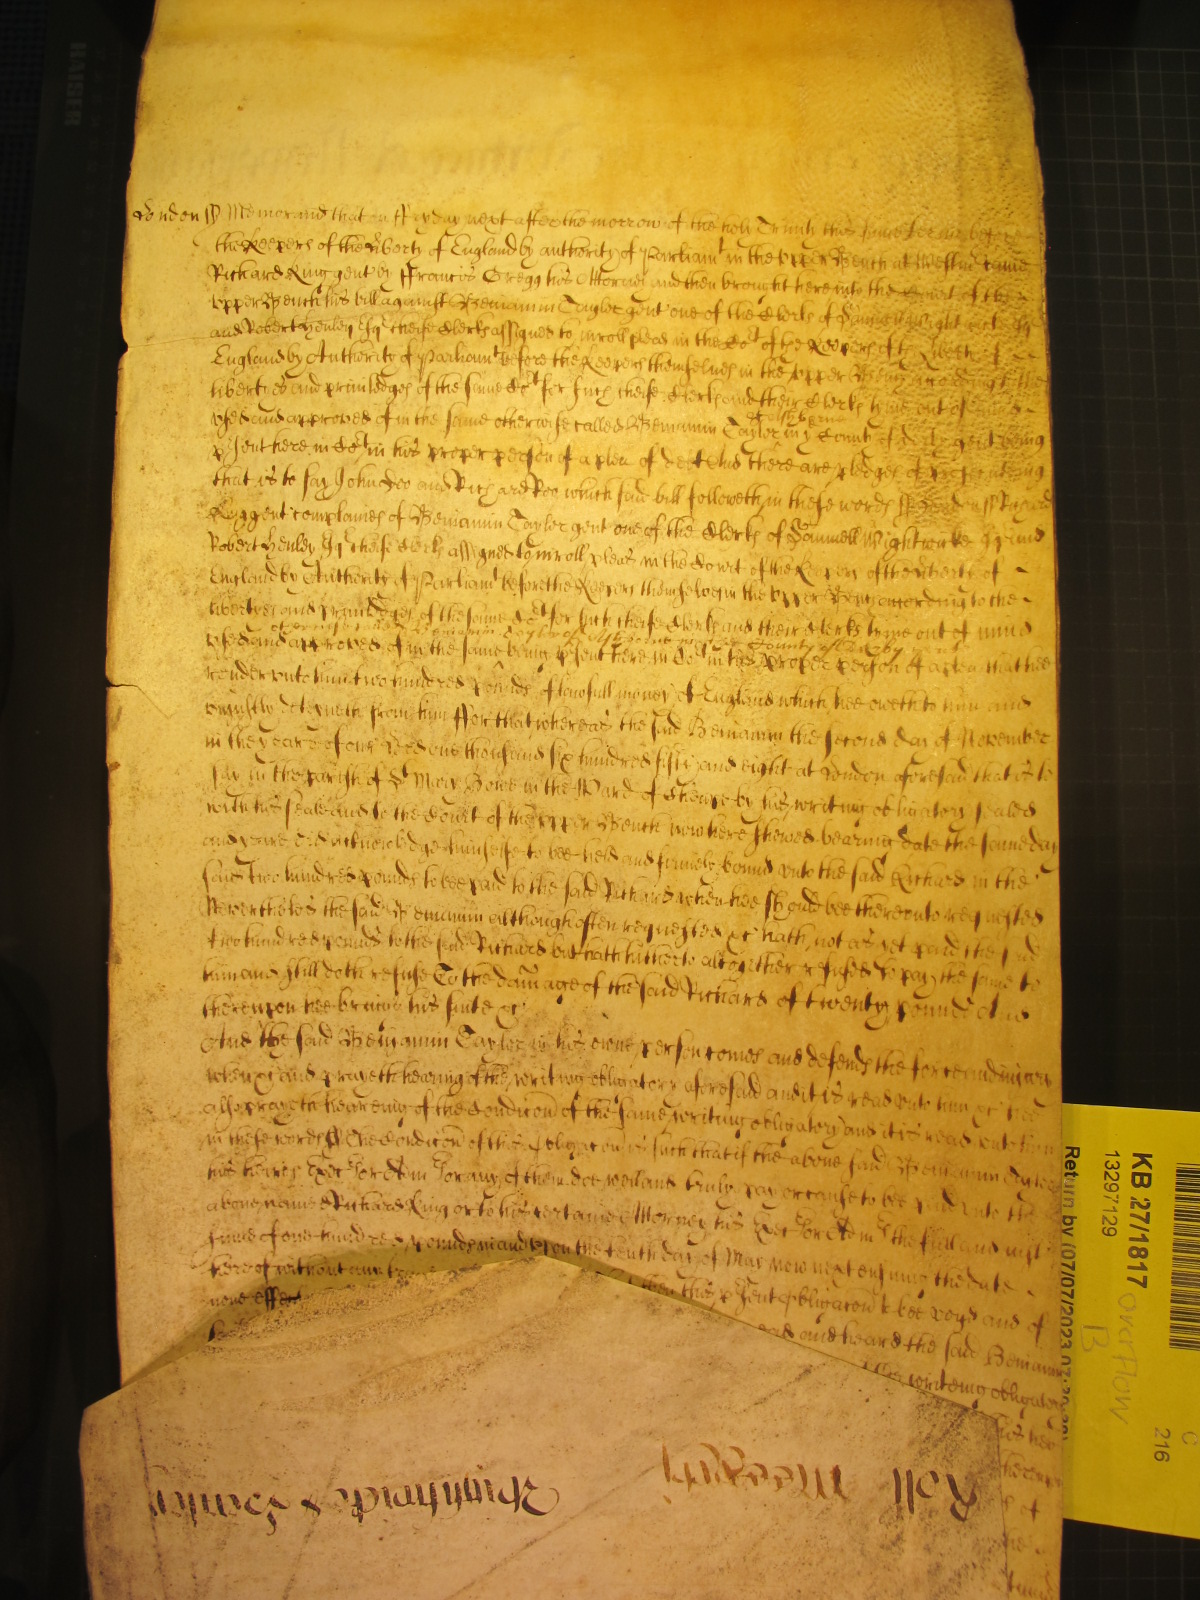 London ss Memorand that on Fryday next after the morrow of the holy Trinity this same terme before
the Keepers of the liberty of England by authority of Parliamt in the upper Bench at Westm came
Richard King gent by Francis Gregg his Attorney and then brought here into the Court of the
upper Bench his bill against Beniamin Taylor gent one of the Clerks of Samuell Wightwicke Esq
and Robert Henley Esq cheife Clerks assigned to inroll pleas in the Cot of the Keepers of the liberty of
England by Authority of Parliamt before the Keepers themselves in the upper Bench according to the
libertyes and priviledges of the same Cot for such cheife Clerks and their Clerks tyme out of mind
used and approved of in the same otherwise called Beniamin Taylor in ye County of derby gent being
psent here in Cot in his proper person of a plea of debt And there are pledges of prosecuteing
that is to say John Doe and Richard Roe which said bill followeth in these words ss London ss Richard
King gent complaines of Beniamin Taylor gent one of the Clerks of Samuell Wightwicke Esq and
Robert Henley Esq cheife Clerks assigned to inroll pleas in the Court of the Keepers of the liberty of
England by Authority of Parliamt before the Keepers themselves in the upper Bench according to the
libertyes and priviledges of the same Cot for such cheife Clerks and their Clerks tyme out of mind
otherwise called Beniamin Taylor of in the County of Derby
used and approved of in the same being psent here in Cot in his proper person of a plea that hee
render unto him two hundred pounds of lawfull money of England which hee oweth to him and
uniustly deteyneth from him For that whereas the said Beniamin the second day of November
in the yeare of our Lord one thousand six hundred fifty and eight at London aforesaid that is to
say in the parish of St Mary Bowe in the Ward of Cheape by his writing obligatory sealed
with his seale and to the Court of the upper Bench now here shewed beareing date the same day
and yeare did acknowledge himselfe to bee held and firmely bound unto the said Richard in the
said two hundred pounds to bee paid to the said Richard when hee should bee thereunto requested
Neverthelesse the said Beniamin although often requested &c hath not as yet paid the said
two hundred pounds to the said Richard but hath hitherto altogether refused to pay the same to
him and still doth refuse To the damage of the said Richard of twenty pounds And
thereupon hee brings his suite &c
And the said Beniamin Taylor in his owne person comes and defends the force and iniury
when &c and prayeth heareing of the writing obligatory aforesaid and it is read unto him &c hee
also prayeth heareing of the Condicon of the same writing obligatory and it is read unto him
in these words ss The Condicon of this obligacon is such that if the above said Beniamin Taylor
his heires Exec or Adm or any of them doe well and truly pay or cause to bee paid unto the
above named Richard King or to his certaine Attorney his Exec or Adm the full and iust
summe of one hundred pounds in and upon the tenth day of May now next ensuing the date
hereof without then this psent obligacon to bee voyd and of
none effect and heard the said Beniamin
writeing obligatory
Roll
Wightwicke & Henley
KB 27/1817 overflow
13297129
B
Return by (07/07/2023
C
216
HAISER